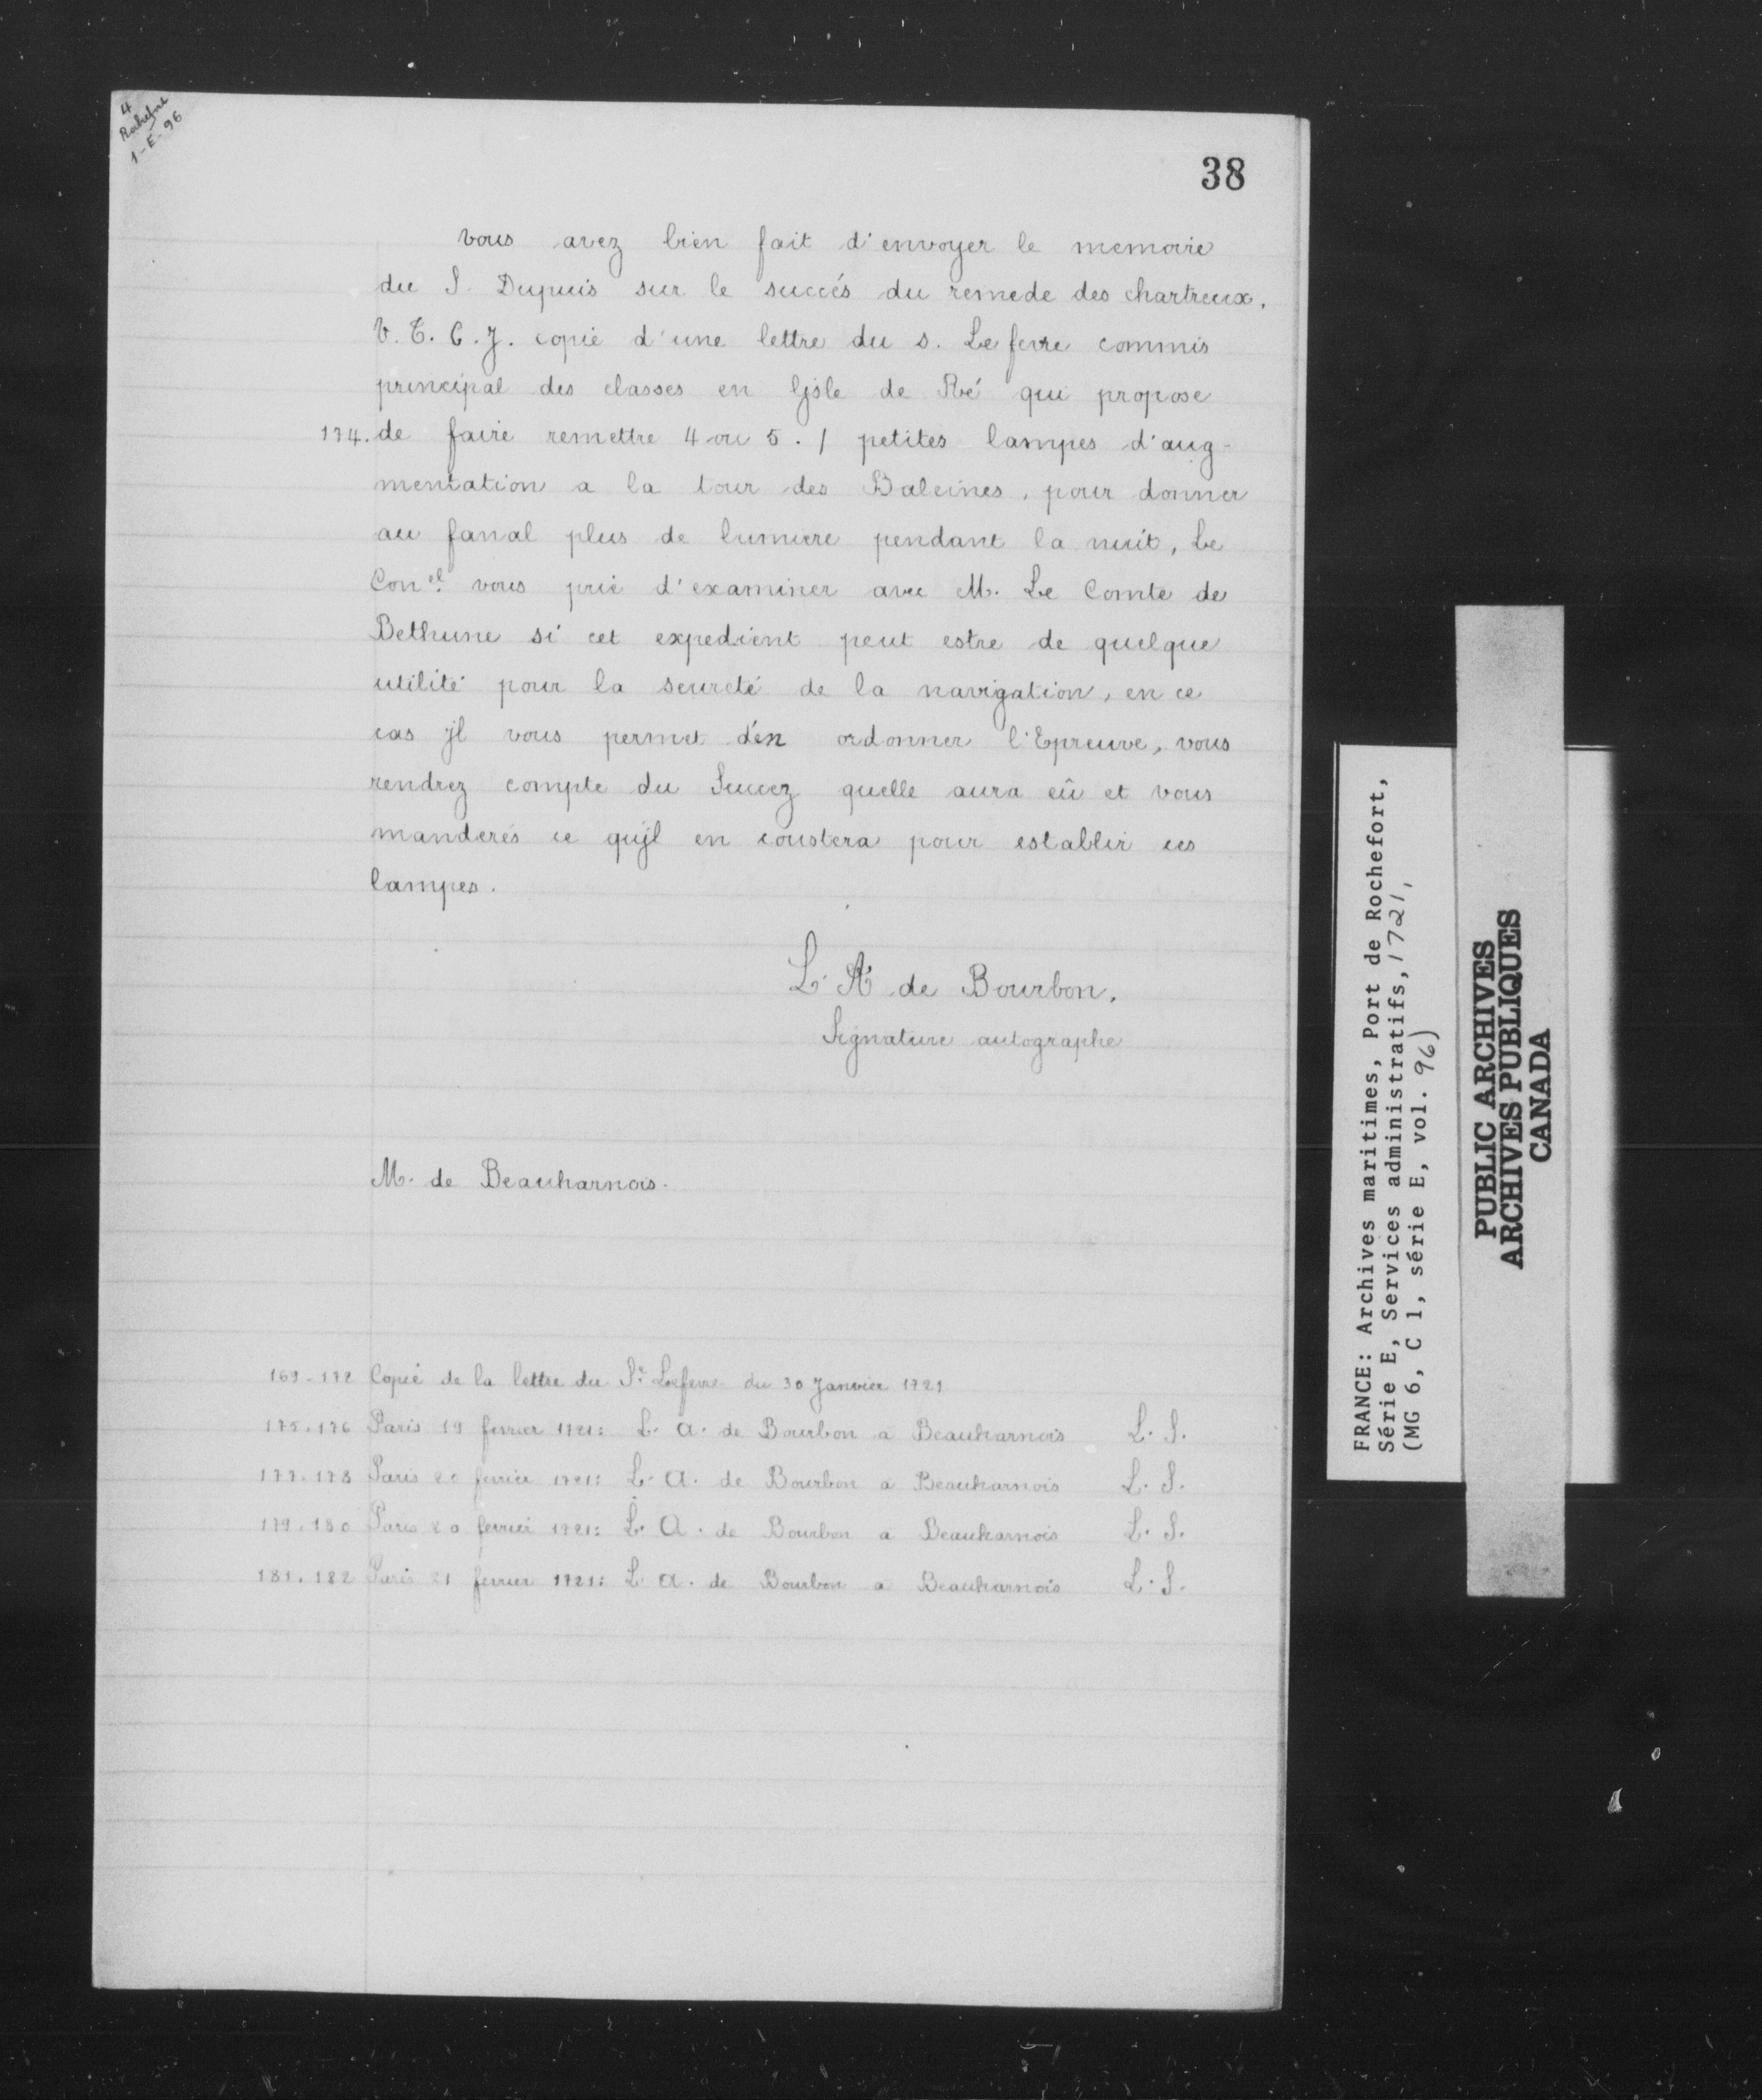 4
Rochefort
1-E-96
38
vous avez bien fait d'envoyer le memoire
du S. Dupuis sur le succés du remede des chartreux.
V. T. C. J. copie d'une lettre du s. Lefevre commis
principal des classes en Lisle de Ré qui propose
174. de faire remettre 4 ou 5. / petites lampes d'aug-
mentation a la tour des Baleines, pour donner
au fanal plus de lumiere pendant la nuit, Le
Con.el vous prie d'examiner avec M. Le Comte de
Bethune si cet expedient peut estre de quelque
utilité pour la seureté de la navigation, en ce
cas jl vous permet d'en ordonner l'Epreuve, vous
rendrez compte du Succez quelle aura eû et vous
manderés ce qujl en coustera pour establir ces
lampes.
L. A de Bourbon.
Signature autographe
M. de Beauharnois.
169-172 Copie de la lettre du Sr Lefevre du 30 Janvier 1721
175.176 Paris 19 fevrier 1721: L. A. de Bourbon a Beauharnois L. S.
177.178 Paris 20 fevrier 1721: L. A. de Bourbon a Beauharnois L. S.
179.180 Paris 20 fevrier 1721: L. A. de Bourbon a Beauharnois L. S.
181.182 Paris 21 fevrier 1721: L. A. de Bourbon a Beauharnois L. S.
FRANCE: Archives maritimes, Port de Rochefort,
Série E, Services administratifs, 1721,
(MG 6, C 1, série E, vol. 96)
PUBLIC ARCHIVES
ARCHIVES PUBLIQUES
CANADA